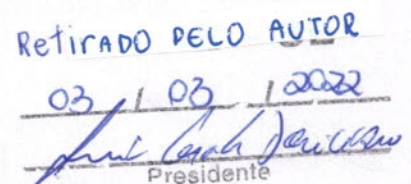 Retirado PELO AUTOR
03 / 03 / 2022
Presidente